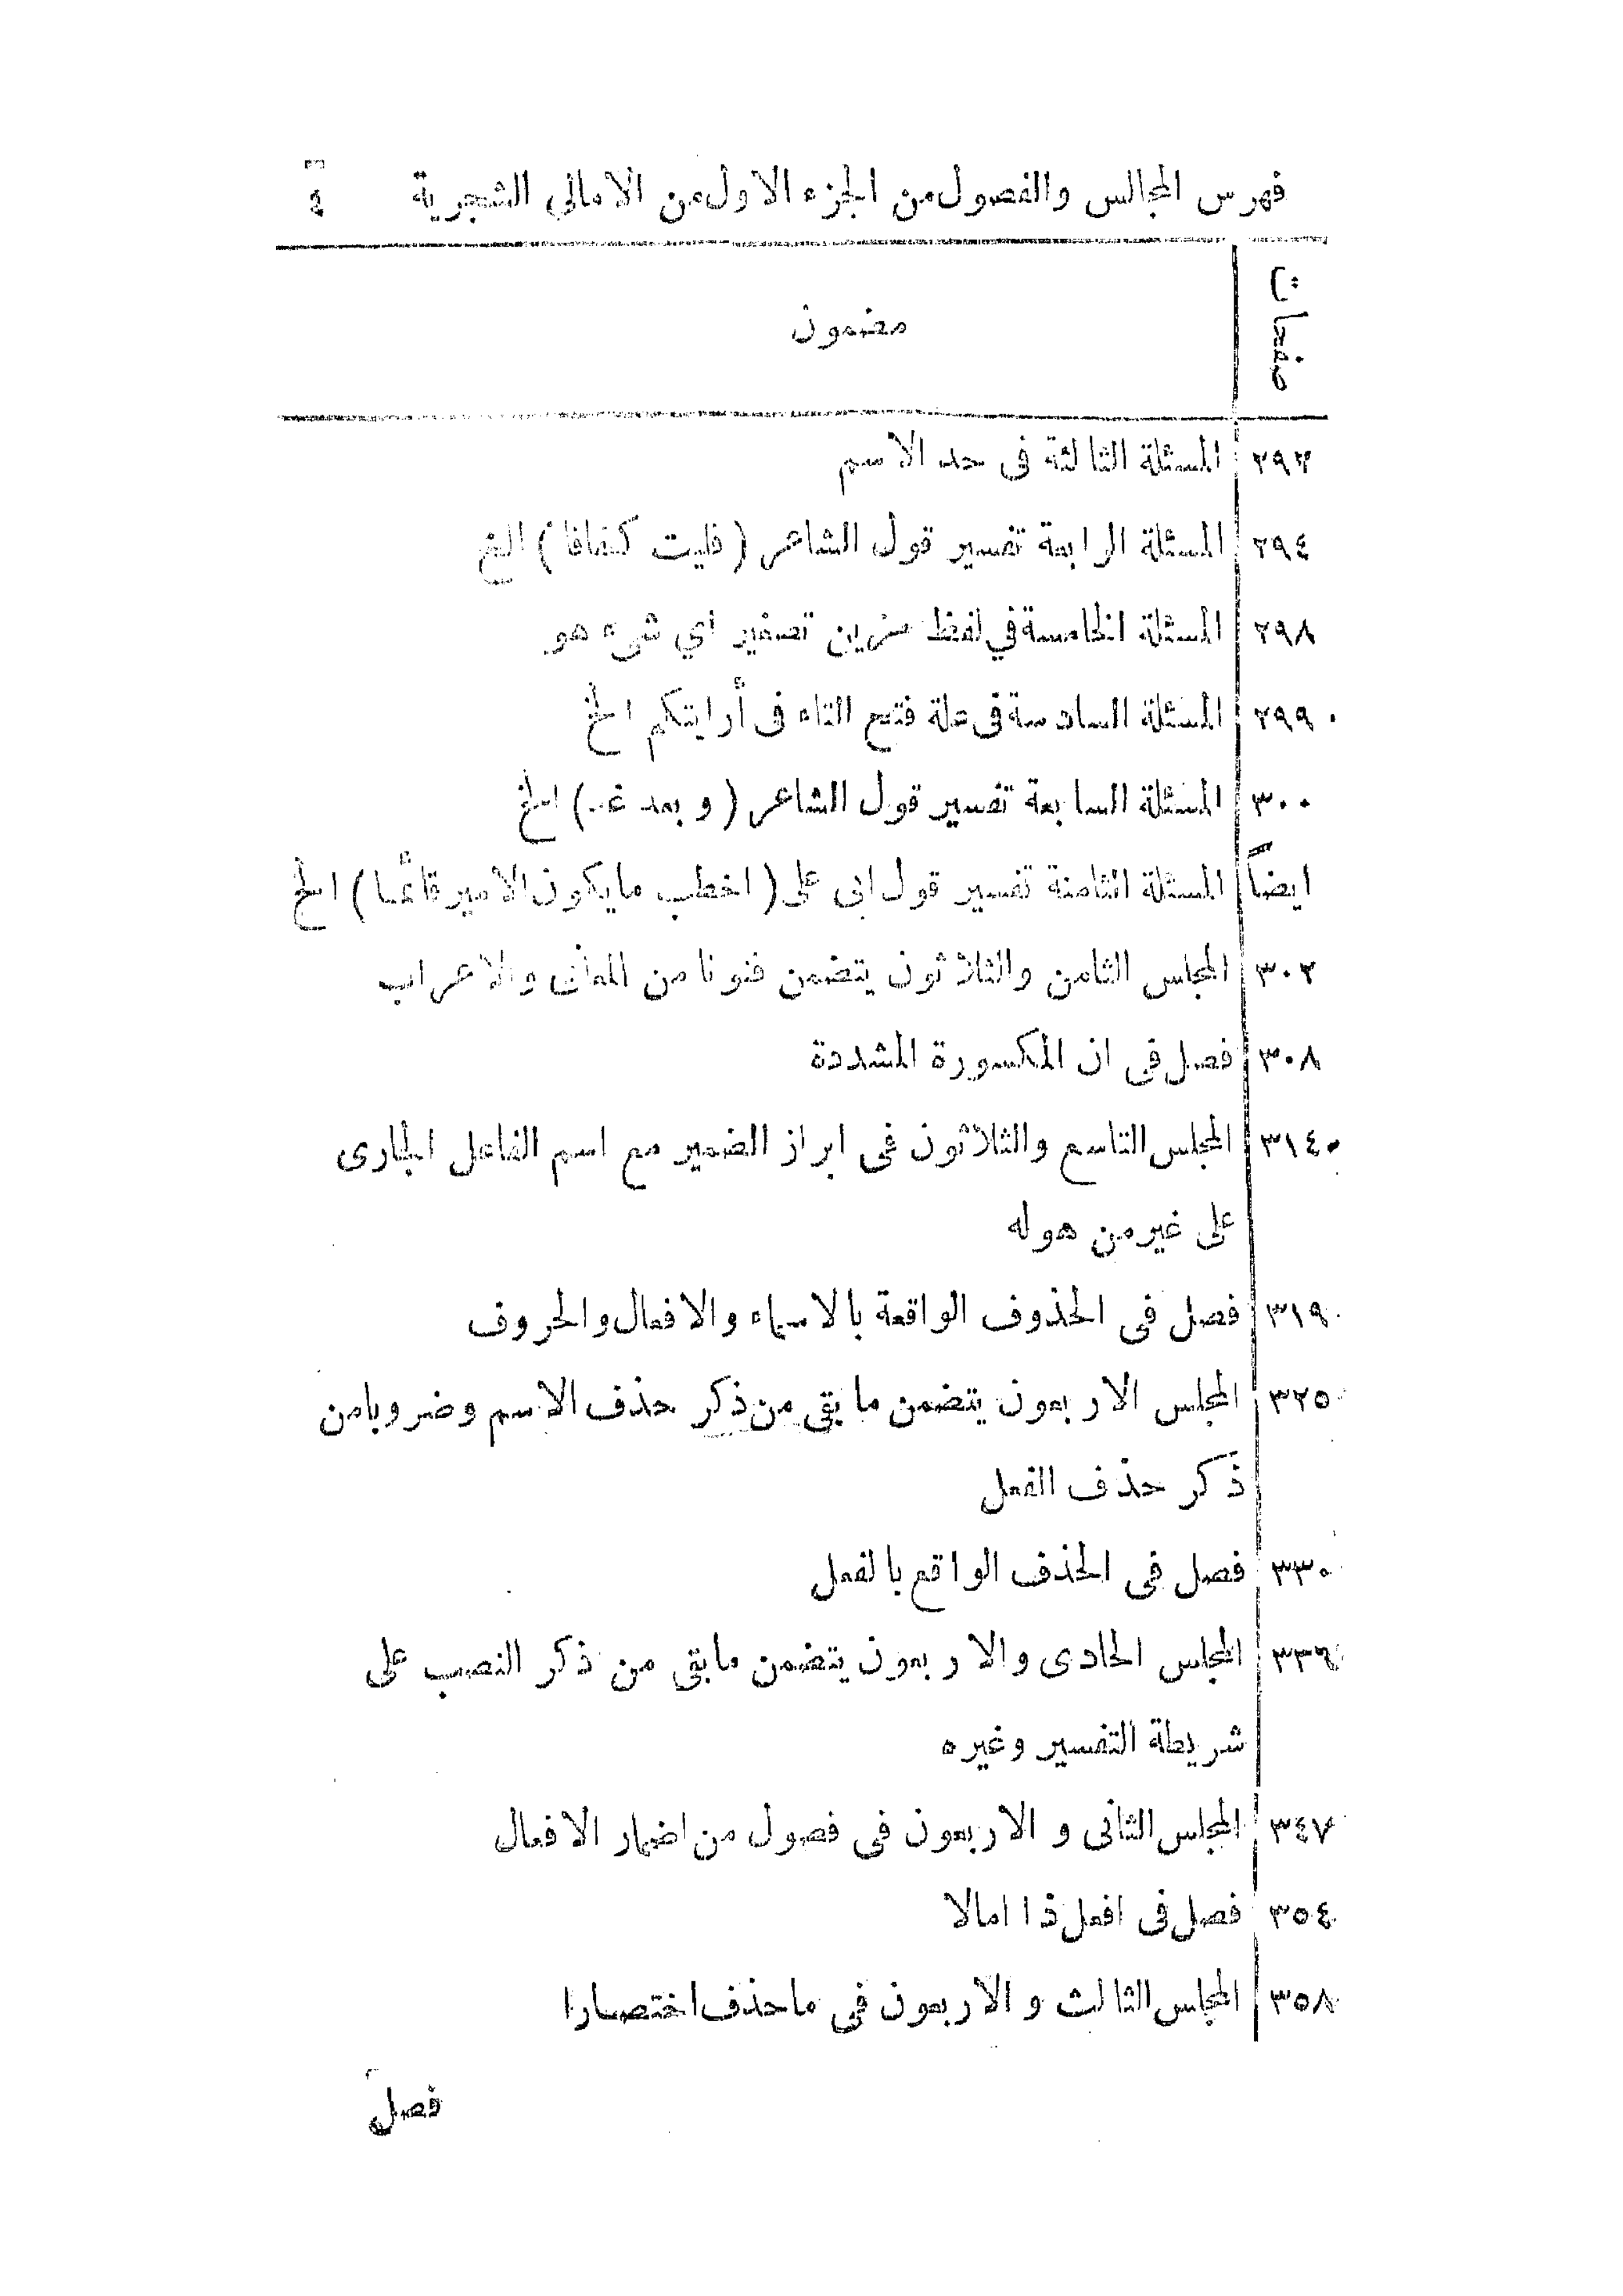 فهرس المجالس والفصول من الجزء الاول من الامالى الشجرية ٤
صفحات
مضمون
٢٩٣ المسئلة الثالثة فى حد الاسم
٢٩٤ المسئلة الرابعة تفسير قول الشاعر ( فليت كفافا ) الخ
٢٩٨ المسئلة الخامسة في لفظ مزين تصغير اي شىء هو
٢٩٩ المسئلة السادسة فى علة فتح التاء فى أرايتكم الخ
٣٠٠ المسئلة السابعة تفسير قول الشاعر ( و بعد غد ) الخ
ايضاً المسئلة الثامنة تفسير قول ابى على ( اخطب ما يكون الامير قائما ) الخ
٣٠٢ المجلس الثامن والثلاثون يتضمن فنونا من المعانى والاعراب
٣٠٨ فصل فى ان المكسورة المشددة
٣١٤ المجلس التاسع والثلاثون فى ابراز الضمير مع اسم الفاعل الجارى
على غير من هو له
٣١٩ فصل فى الحذوف الواقعة بالاسماء والافعال والحروف
٣٢٥ المجلس الاربعون يتضمن ما بقى من ذكر حذف الاسم وضروبا من
ذكر حذف الفعل
٣٣٠ فصل فى الحذف الواقع بالفعل
٣٣٦ المجلس الحادى والاربعون يتضمن مابقى من ذكر النصب على
شريطة التفسير وغيره
٣٤٧ المجلس الثانى و الاربعون فى فصول من اضمار الافعال
٣٥٤ فصل فى افعل ذا امالا
٣٥٨ المجلس الثالث و الاربعون فى ما حذف اختصارا
فصل